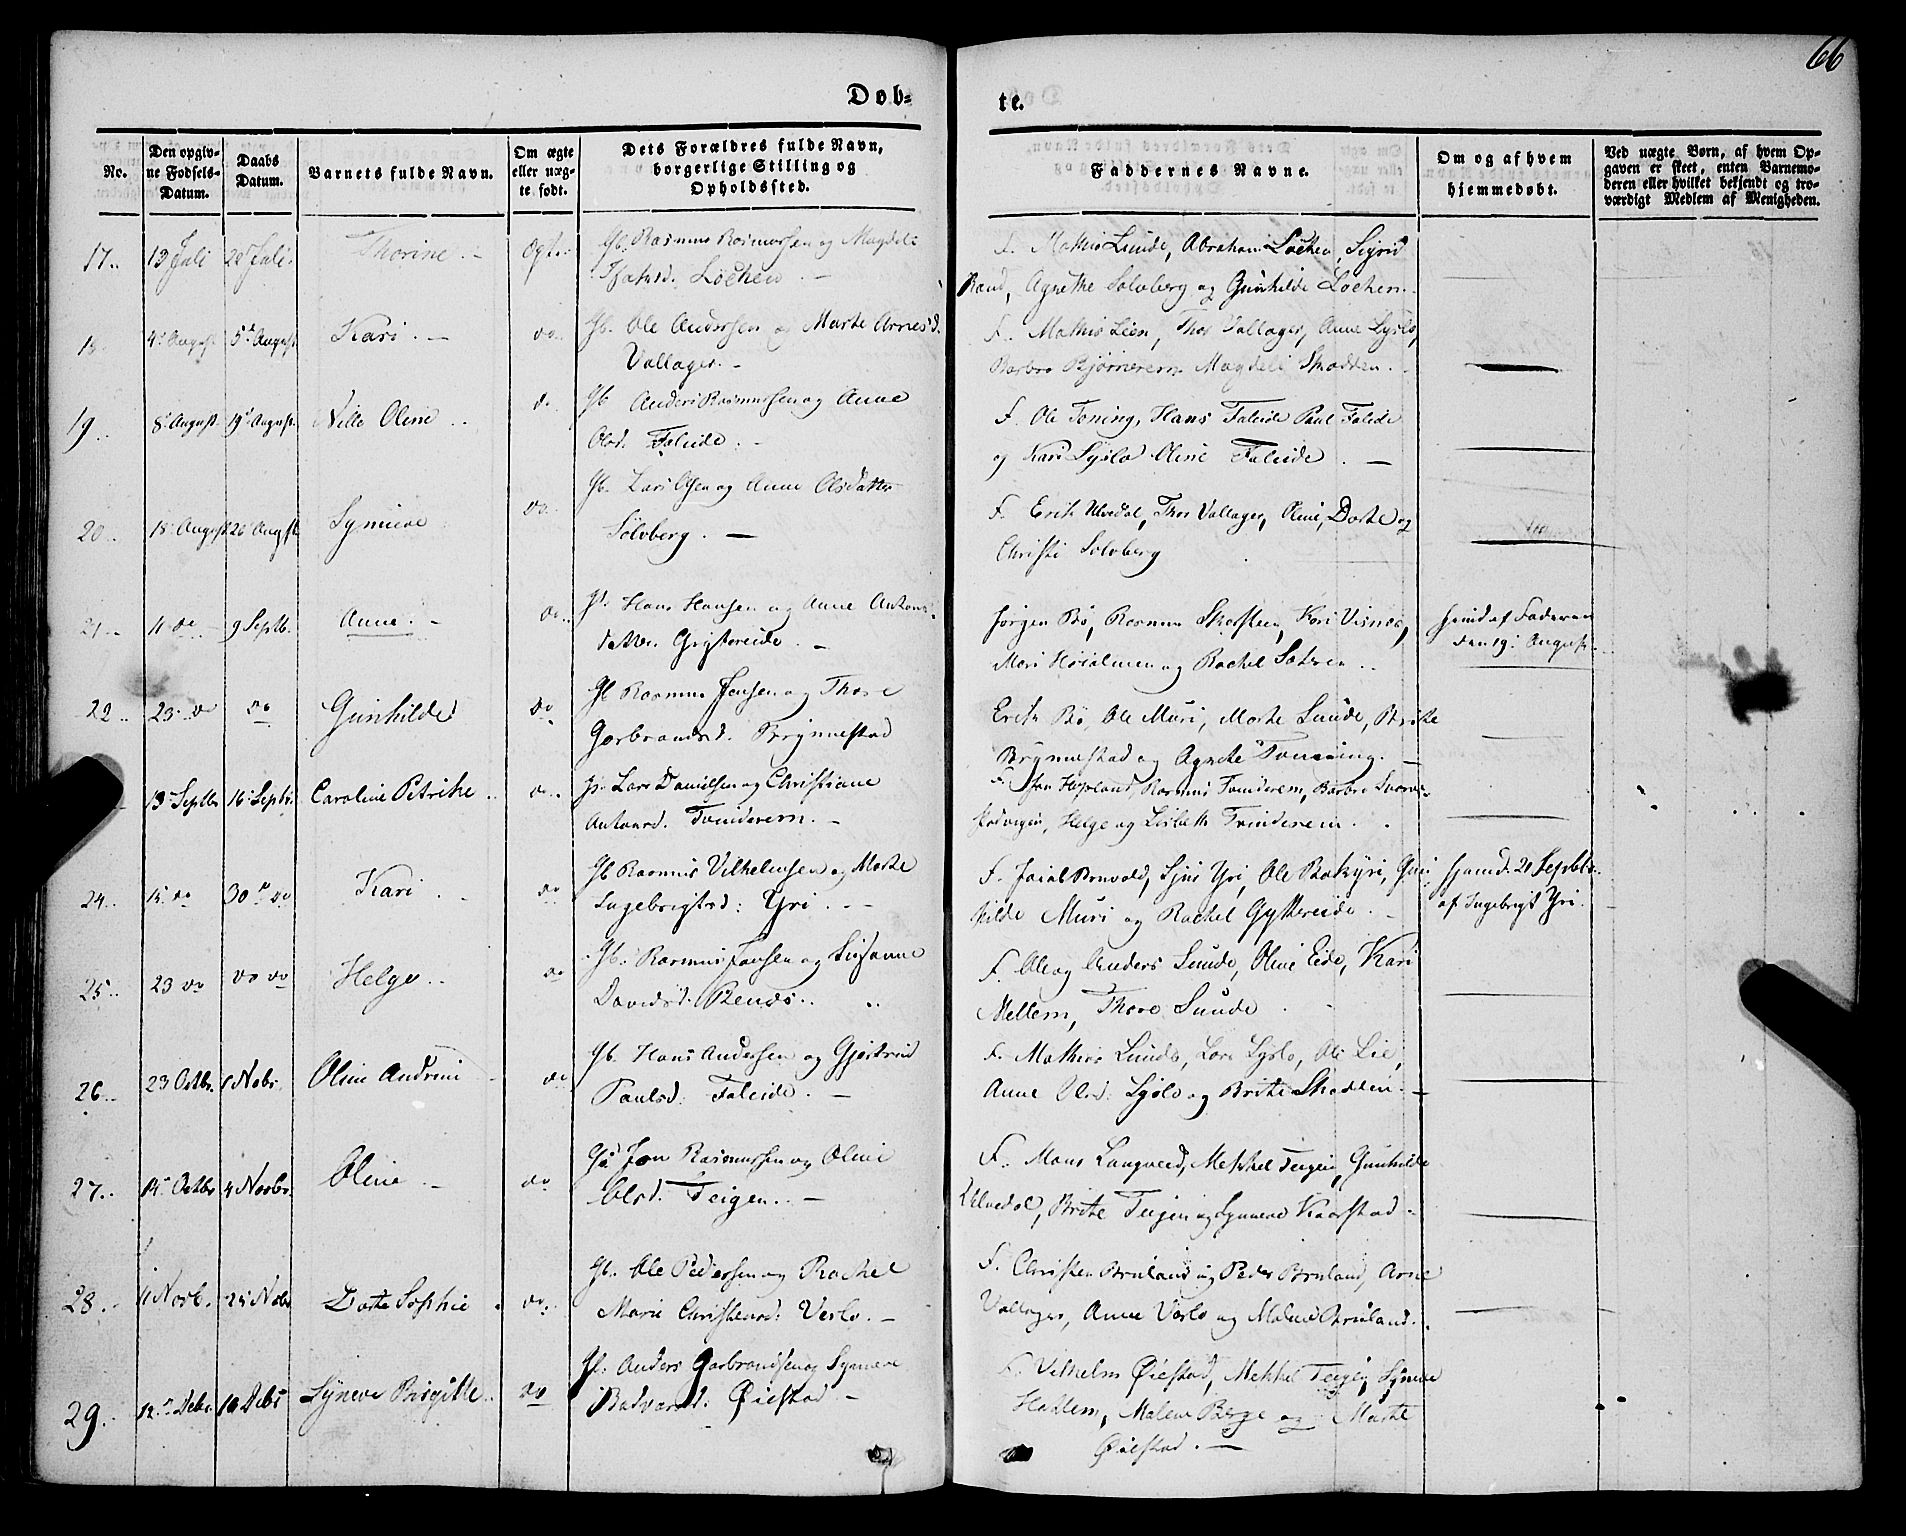 66
Døb=
te.
No.
Den opgiv-
ne Fødsels-
Datum.
Daabs
Datum.
Barnets fulde Navn.
Om ægte
eller uæg-
te født.
Dets Forældres fulde Navn,
borgerlige Stilling og
Opholdssted.
Faddernes Navne.
Om og af hvem
hjemmedøbt.
Ved uægte Børn, af hvem Op-
gaven er skeet, enten Barnemo-
deren eller hvilket bekjendt og tro-
værdigt Medlem af Menigheden.
17. 13 Juli Juli. Thorine. Ægte. Gb. Rasmus Rasmussen og Magdeli
Løchen
F. Mathis Lunde, Abraham Løchen, Sigrid
Rand, Agnethe Solvberg og Gunhilde Løchen.
4. August 5t August Kari. do. Gb. Ole Andersen og Marte Arnesd.
Vallager.
F. Mathis Lien, Thor Vallager, Anne Lyslo,
Barbro Bjørnerem Magdeli Skadden.
19. 8. August 19. August. Nille Oline do Gb Anders Rasmussen og Anne
Olsd. Faleide.
F. Ole Toning, Hans Faleide Paul Faleide
og Kari Lyslo Oline Faleide.
20. 18. August 26 August Synneve do. Gb. Lars Olsen og Anne Olsdatter
Solvberg.
F. Erik Ulvedal, Thor Vallager, Oline, Dorte og
Christi Solvberg
21. 11 do 9 Septb. Anne. do. Hans Hansen og Anne Antons-
datter Gryttereide.
Jørgen Bø, Rasmus Skarsteen, Kari Visnæs,
Mari Høialmen og Rachel Sætren
hjemd. af Faderen
den 19. August
22. 23. do do Gunhilde do Gb Rasmus Jensen og Thore
Garbrandsd. Brynnestad
Erik Bø, Ole Muri, Marte Sunde, Brite
Brynnestad og Agnete Tonning.
13. Septbr 16. Septbr. Caroline Petrike do. Lars Danielsen og Christiane
Antonsd. Tvinderem.
F. Jon Hopland, Rasmus Tvinderem, Barbro
Helge og Lisbeth Tvinderem.
24. 15. do 30. do Kari do Gb Rasmus Vilhelmsen og Marte
Ingebrigtsd: Yri.
F. Jacob Bruvold, Yri, Ole Bakyri, Gun-
hilde Muri og Rachel Gyttereide.
hjemd. 21 Septbr.
af Ingebrigt Yri.
25. 23 do do do Helge. do Gb: Rasmus Jansen og Susanne
Davidsd. Renæs.
F. Ole og Anders Sunde, Oline Eide, Kari
Mellem, Thore Sunde
26. 23 Octbr. 1 Nobr. Oline Andrine do Gb. Hans Andersen og Gjertrud
Paulsd: Faleide.
F. Mathias Lunde, Lars Lyslo, Ole Lie,
Anne Olsd: Lyslo og Brite Skadden.
27. 15. Octbr 4 Novbr. Oline do Jon Rasmussen og Oline
Olsd. Teigen.
F. Mons Langveed, Mekkel Teigen, Gunhilde
Ulvedal, Brite Teigen og Synneve Kaarstad.
28. 11 Novb. 25. Nobr Dorte Sophie. do. Gb. Ole Pedersen og Rachel
Marie Christensd: Verlo.
F. Christen Bruland og Peder Bruland, Arne
Vallager, Anne Verlo og Malene Bruland.
29. 12. Debr. 16 Debr Synneve Birgitte. do Gb. Anders Garbrandsen og Synneve
Øiestad
F. Vilhelm Øiestad, Mekkel Teigen, Synneve
Hadlem, Malene Berge og Marte
Øiestad.